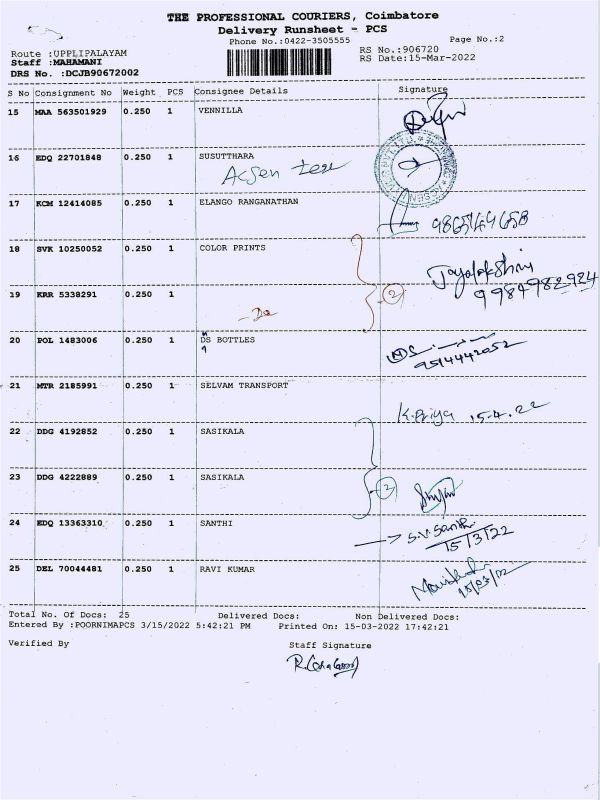 THE PROFESSIONAL COURIERS, Coimbatore
Delivery Runsheet - PCS
Phone No.:0422-3505555 Page No.:2
Route :UPPLIPALAYAM RS No.:906720
Staff :MAHAMANI RS Date:15-Mar-2022
DRS No. :DCJB90672002
S No Consignment No Weight PCS Consignee Details Signature
15 MAA 563501929 0.250 1 VENNILLA
16 EDQ 22701848 0.250 1 SUSUTTHARA
17 KCM 12414085 0.250 1 ELANGO RANGANATHAN
18 SVK 10250052 0.250 1 COLOR PRINTS
Jayalakshmi
9984982924
19 KRR 5338291 0.250 1
2
- Do
20 POL 1483006 0.250 1 DS BOTTLES
9514442052
21 MTR 2185991 0.250 1 SELVAM TRANSPORT
K.Priya 15.4.22
22 DDG 4192852 0.250 1 SASIKALA
23 DDG 4222889 0.250 1 SASIKALA
2
24 EDQ 13363310 0.250 1 SANTHI
S.V.Santhi
15/3/22
25 DEL 70044481 0.250 1 RAVI KUMAR
Total No. Of Docs: 25 Delivered Docs: Non Delivered Docs:
Entered By :POORNIMAPCS 3/15/2022 5:42:21 PM Printed On: 15-03-2022 17:42:21
Verified By Staff Signature